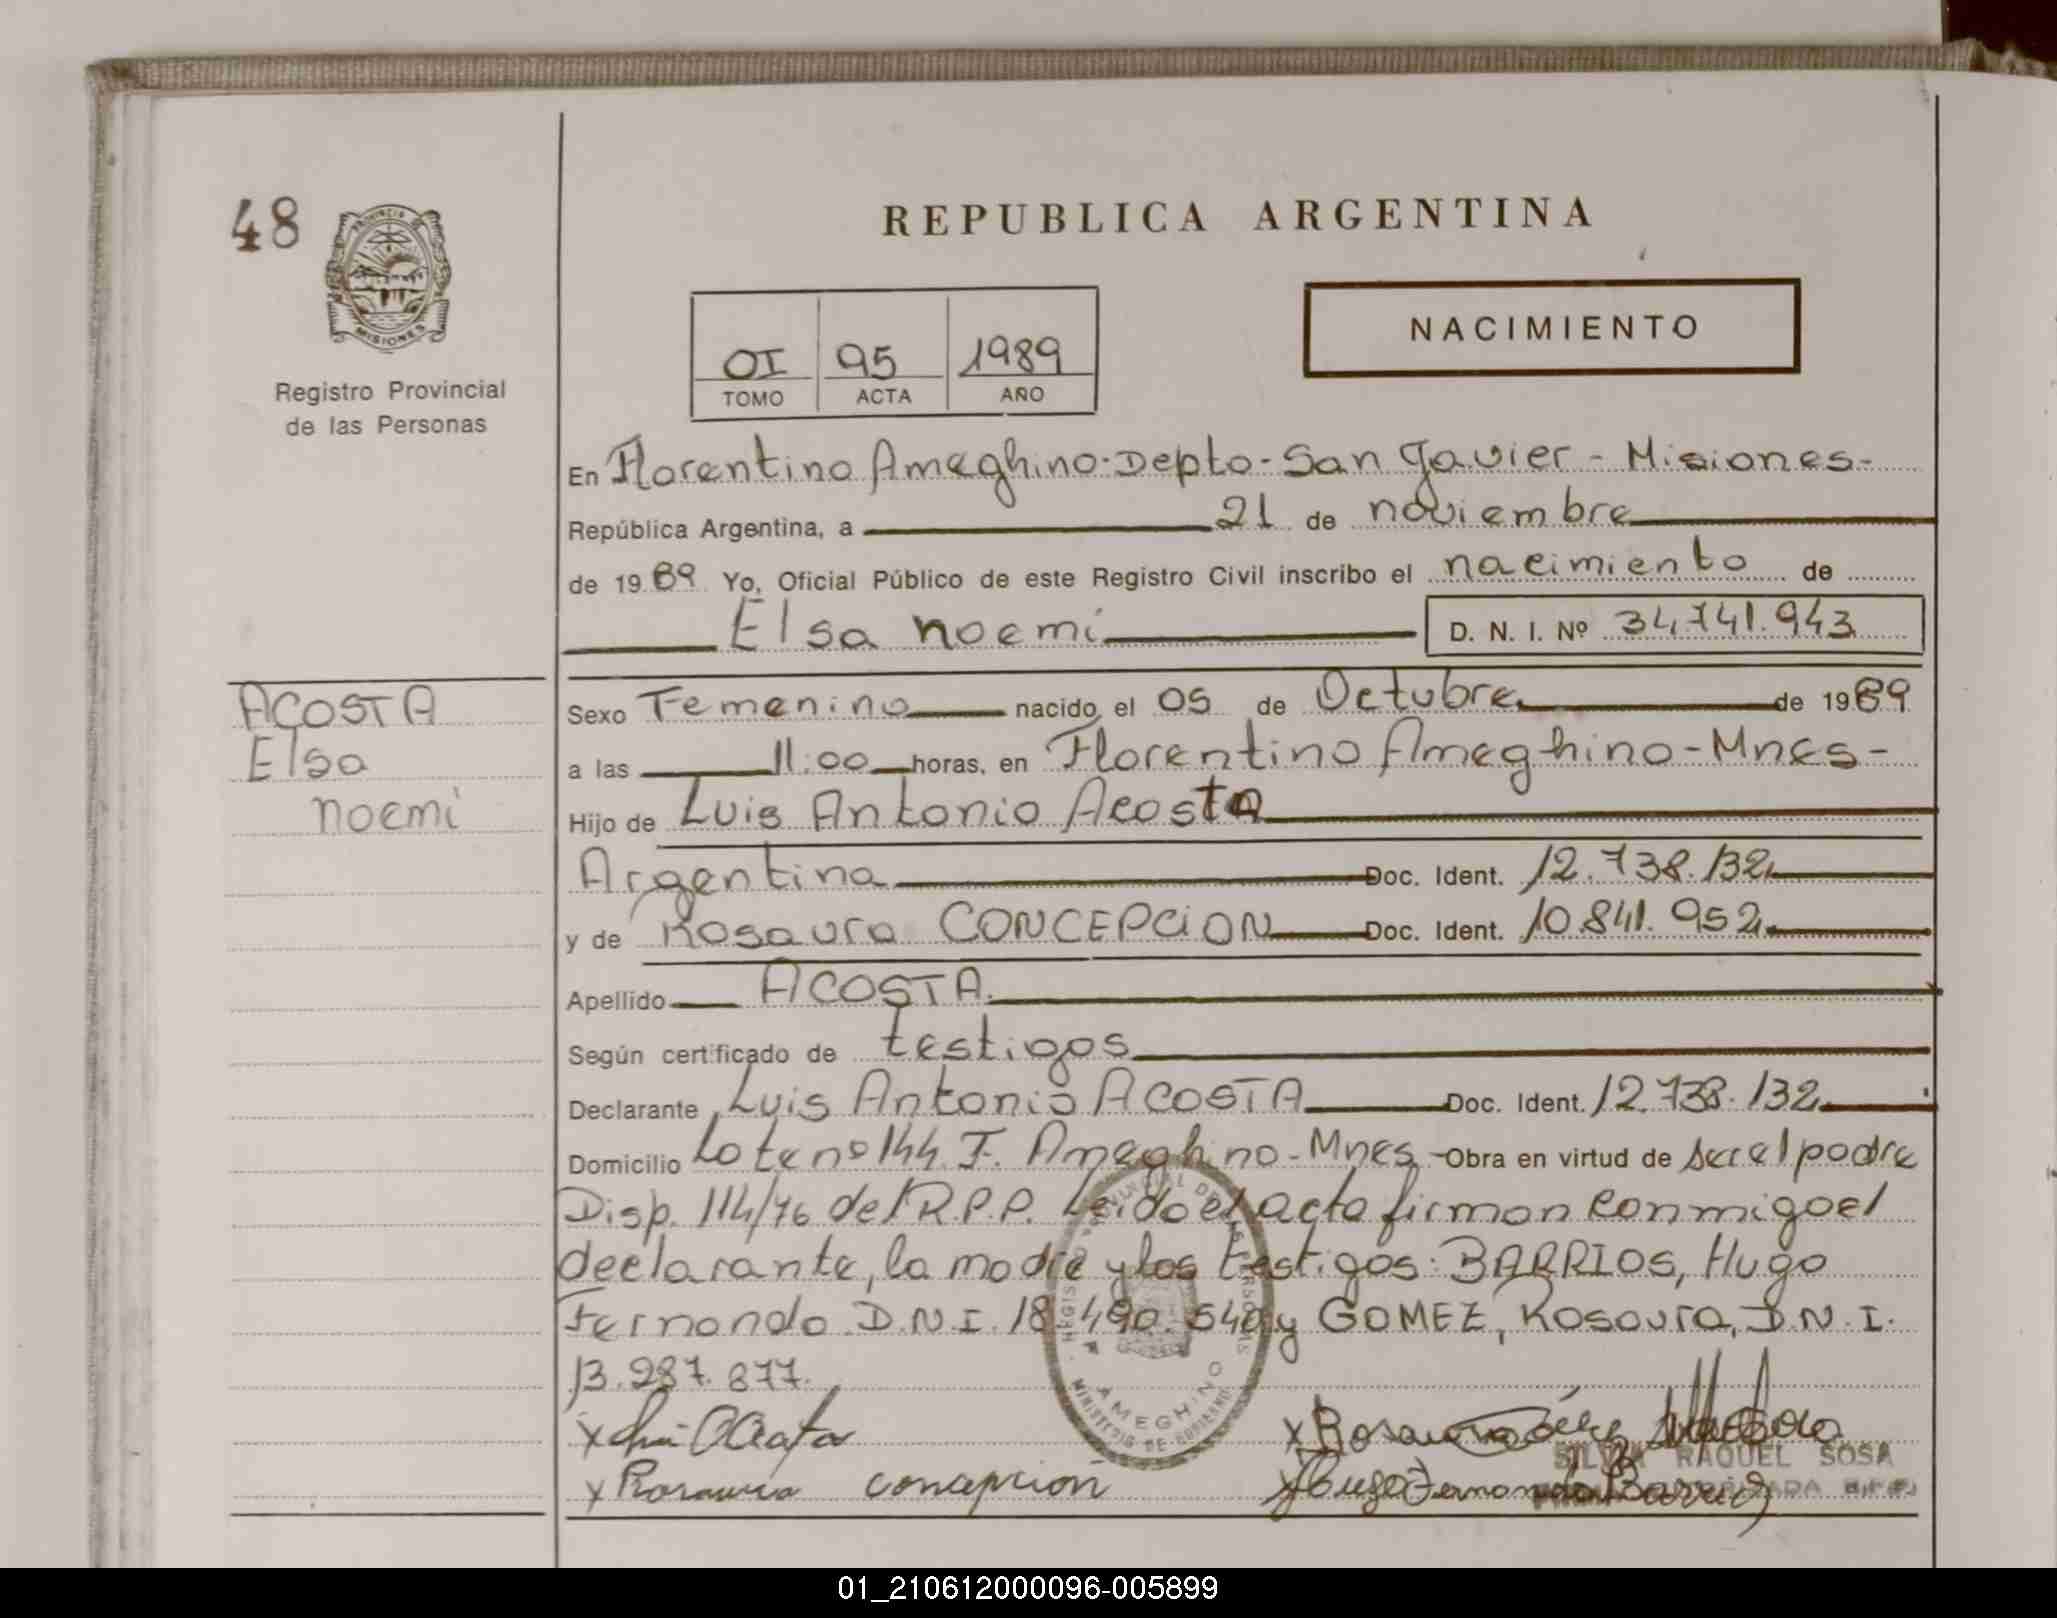 48
PROVINCIA DE
MISIONES
Registro Provincial
de las Personas
REPUBLICA ARGENTINA
OI 95 1989
TOMO ACTA AÑO
NACIMIENTO
En Florentino Ameghino-Depto-San Javier-Misiones-
República Argentina, a 21 de noviembre
de 1989 Yo, Oficial Público de este Registro Civil inscribo el nacimiento de
Elsa noemí D. N. I. Nº 34.741.943
ACOSTA
Elsa
noemí
Sexo Femenino nacido el 05 de Octubre de 1989
a las 11:00 horas, en Florentino Ameghino-Mnes-
Hijo de Luis Antonio Acosta
Argentina Doc. Ident. 12.738.132
y de Rosaura CONCEPCION Doc. Ident. 10.841.952
Apellido ACOSTA
Según certificado de testigos
Declarante Luis Antonio ACOSTA Doc. Ident. 12.738.132
Domicilio Lote nº 144 F. Ameghino-Mnes - Obra en virtud de ser el padre
Disp. 114/76 del R.P.P. Leido el acta firman conmigo el
declarante, la madre y los testigos: BARRIOS, Hugo
Fernando D.N.I. 18.490.540 y GOMEZ, Rosaura, D.N.I.
13.287.877.
x Acosta x Rosaura
SILVIA RAQUEL SOSA
x Rosaura concepción x Hugo Fernando Barrios
AMEGHINO
MINISTERIO DE GOBIERNO
01_210612000096-005899